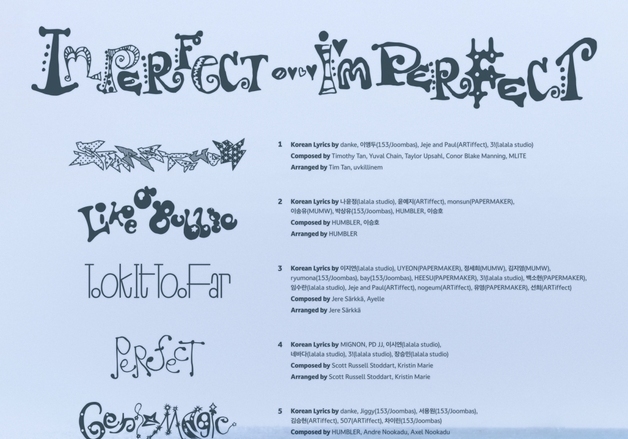 ImPERFECT I'm PERFECT
1 Korean Lyrics by danke, 이맹두(153/Joombas), Jeje and Paul(ARTiffect), 3!(lalala studio)
Composed by Timothy Tan, Yuval Chain, Taylor Upsahl, Conor Blake Manning, MLITE
Arranged by Tim Tan, uvkillinem
Like a Bubble
2 Korean Lyrics by 나윤정(lalala studio), 윤예지(ARTiffect), monsun(PAPERMAKER),
이송유(MUMW), 박상유(153/Joombas), HUMBLER, 이승호
Composed by HUMBLER, 이승호
Arranged by HUMBLER
TookItTooFar
3 Korean Lyrics by 이지연(lalala studio), UYEON(PAPERMAKER), 정세희(MUMW), 김지영(MUMW),
ryumona(153/Joombas), bay(153/Joombas), HEESU(PAPERMAKER), 3!(lalala studio), 백소원(PAPERMAKER),
임수란(lalala studio), Jeje and Paul(ARTiffect), nogeum(ARTiffect), 유영(PAPERMAKER), 선희(ARTiffect)
Composed by Jere Särkkä, Ayelle
Arranged by Jere Särkkä
PERfECT
4 Korean Lyrics by MIGNON, PD JJ, 이시연(lalala studio),
네바다(lalala studio), 3!(lalala studio), 장승인(lalala studio)
Composed by Scott Russell Stoddart, Kristin Marie
Arranged by Scott Russell Stoddart, Kristin Marie
5 Korean Lyrics by danke, Jiggy(153/Joombas), 서용원(153/Joombas),
김승현(ARTiffect), 507(ARTiffect), 차이린(153/Joombas)
Composed by HUMBLER, Andre Nookadu, Axel Nookadu